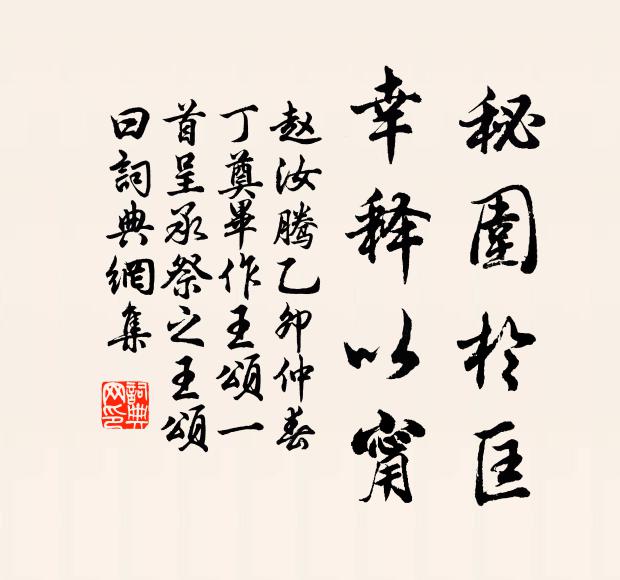 秘圍於匡
幸释以甯
赵汝騰乙卯仲春
丁奠畢作王頌一
首呈承祭之王頌
曰詞典網集
詞典
网印